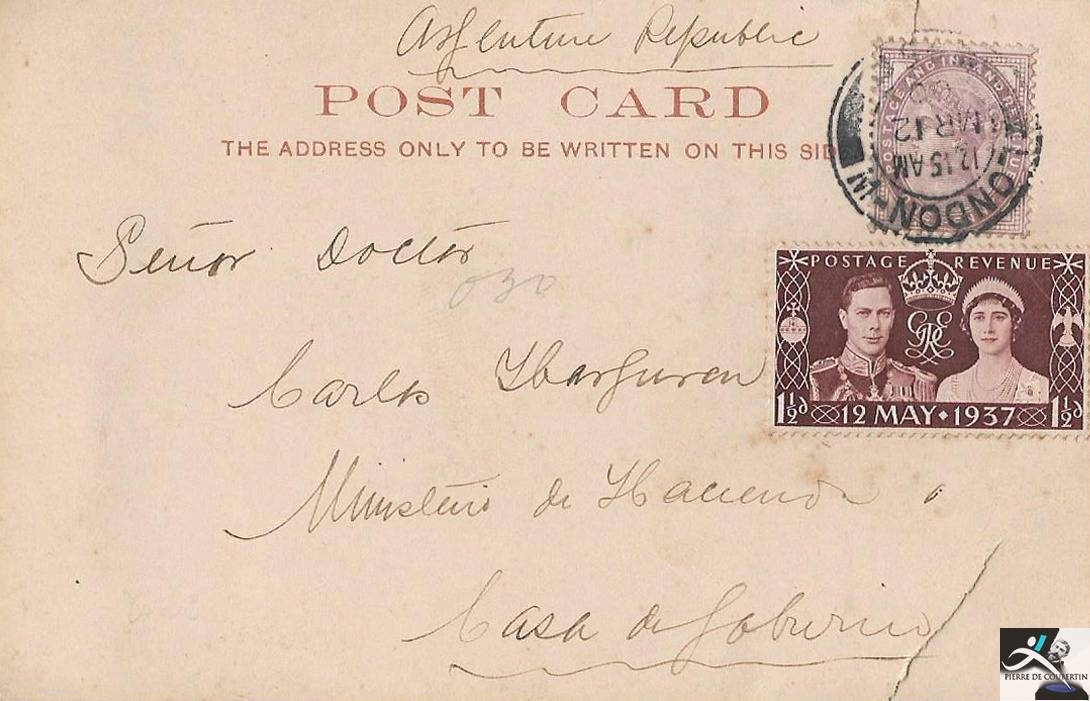 Argentine Republic
POST CARD
THE ADDRESS ONLY TO BE WRITTEN ON THIS SID
POSTAGE AND INLAND REVENUE
MR 12
12.15 AM
LONDON·W.
Señor Doctor
030
POSTAGE REVENUE
GRE
1½d 12 MAY · 1937 1½d
Carlos Ibarguren
Ministerio de Hacienda
Casa de Gobierno
PIERRE DE COUBERTIN